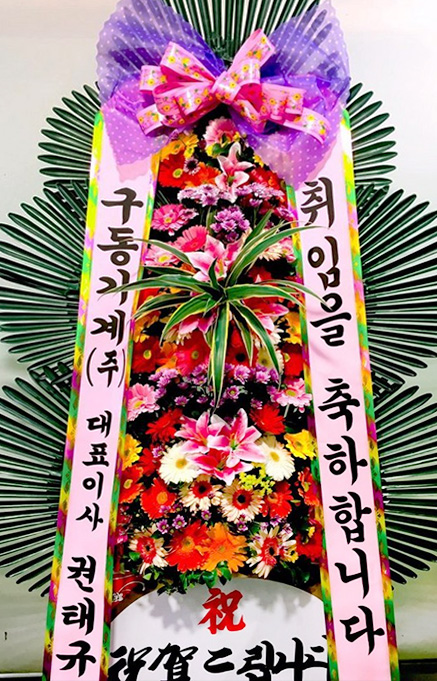 취임을 축하합니다
구동기계(주) 대표이사 권태규
祝
祝賀드립니다